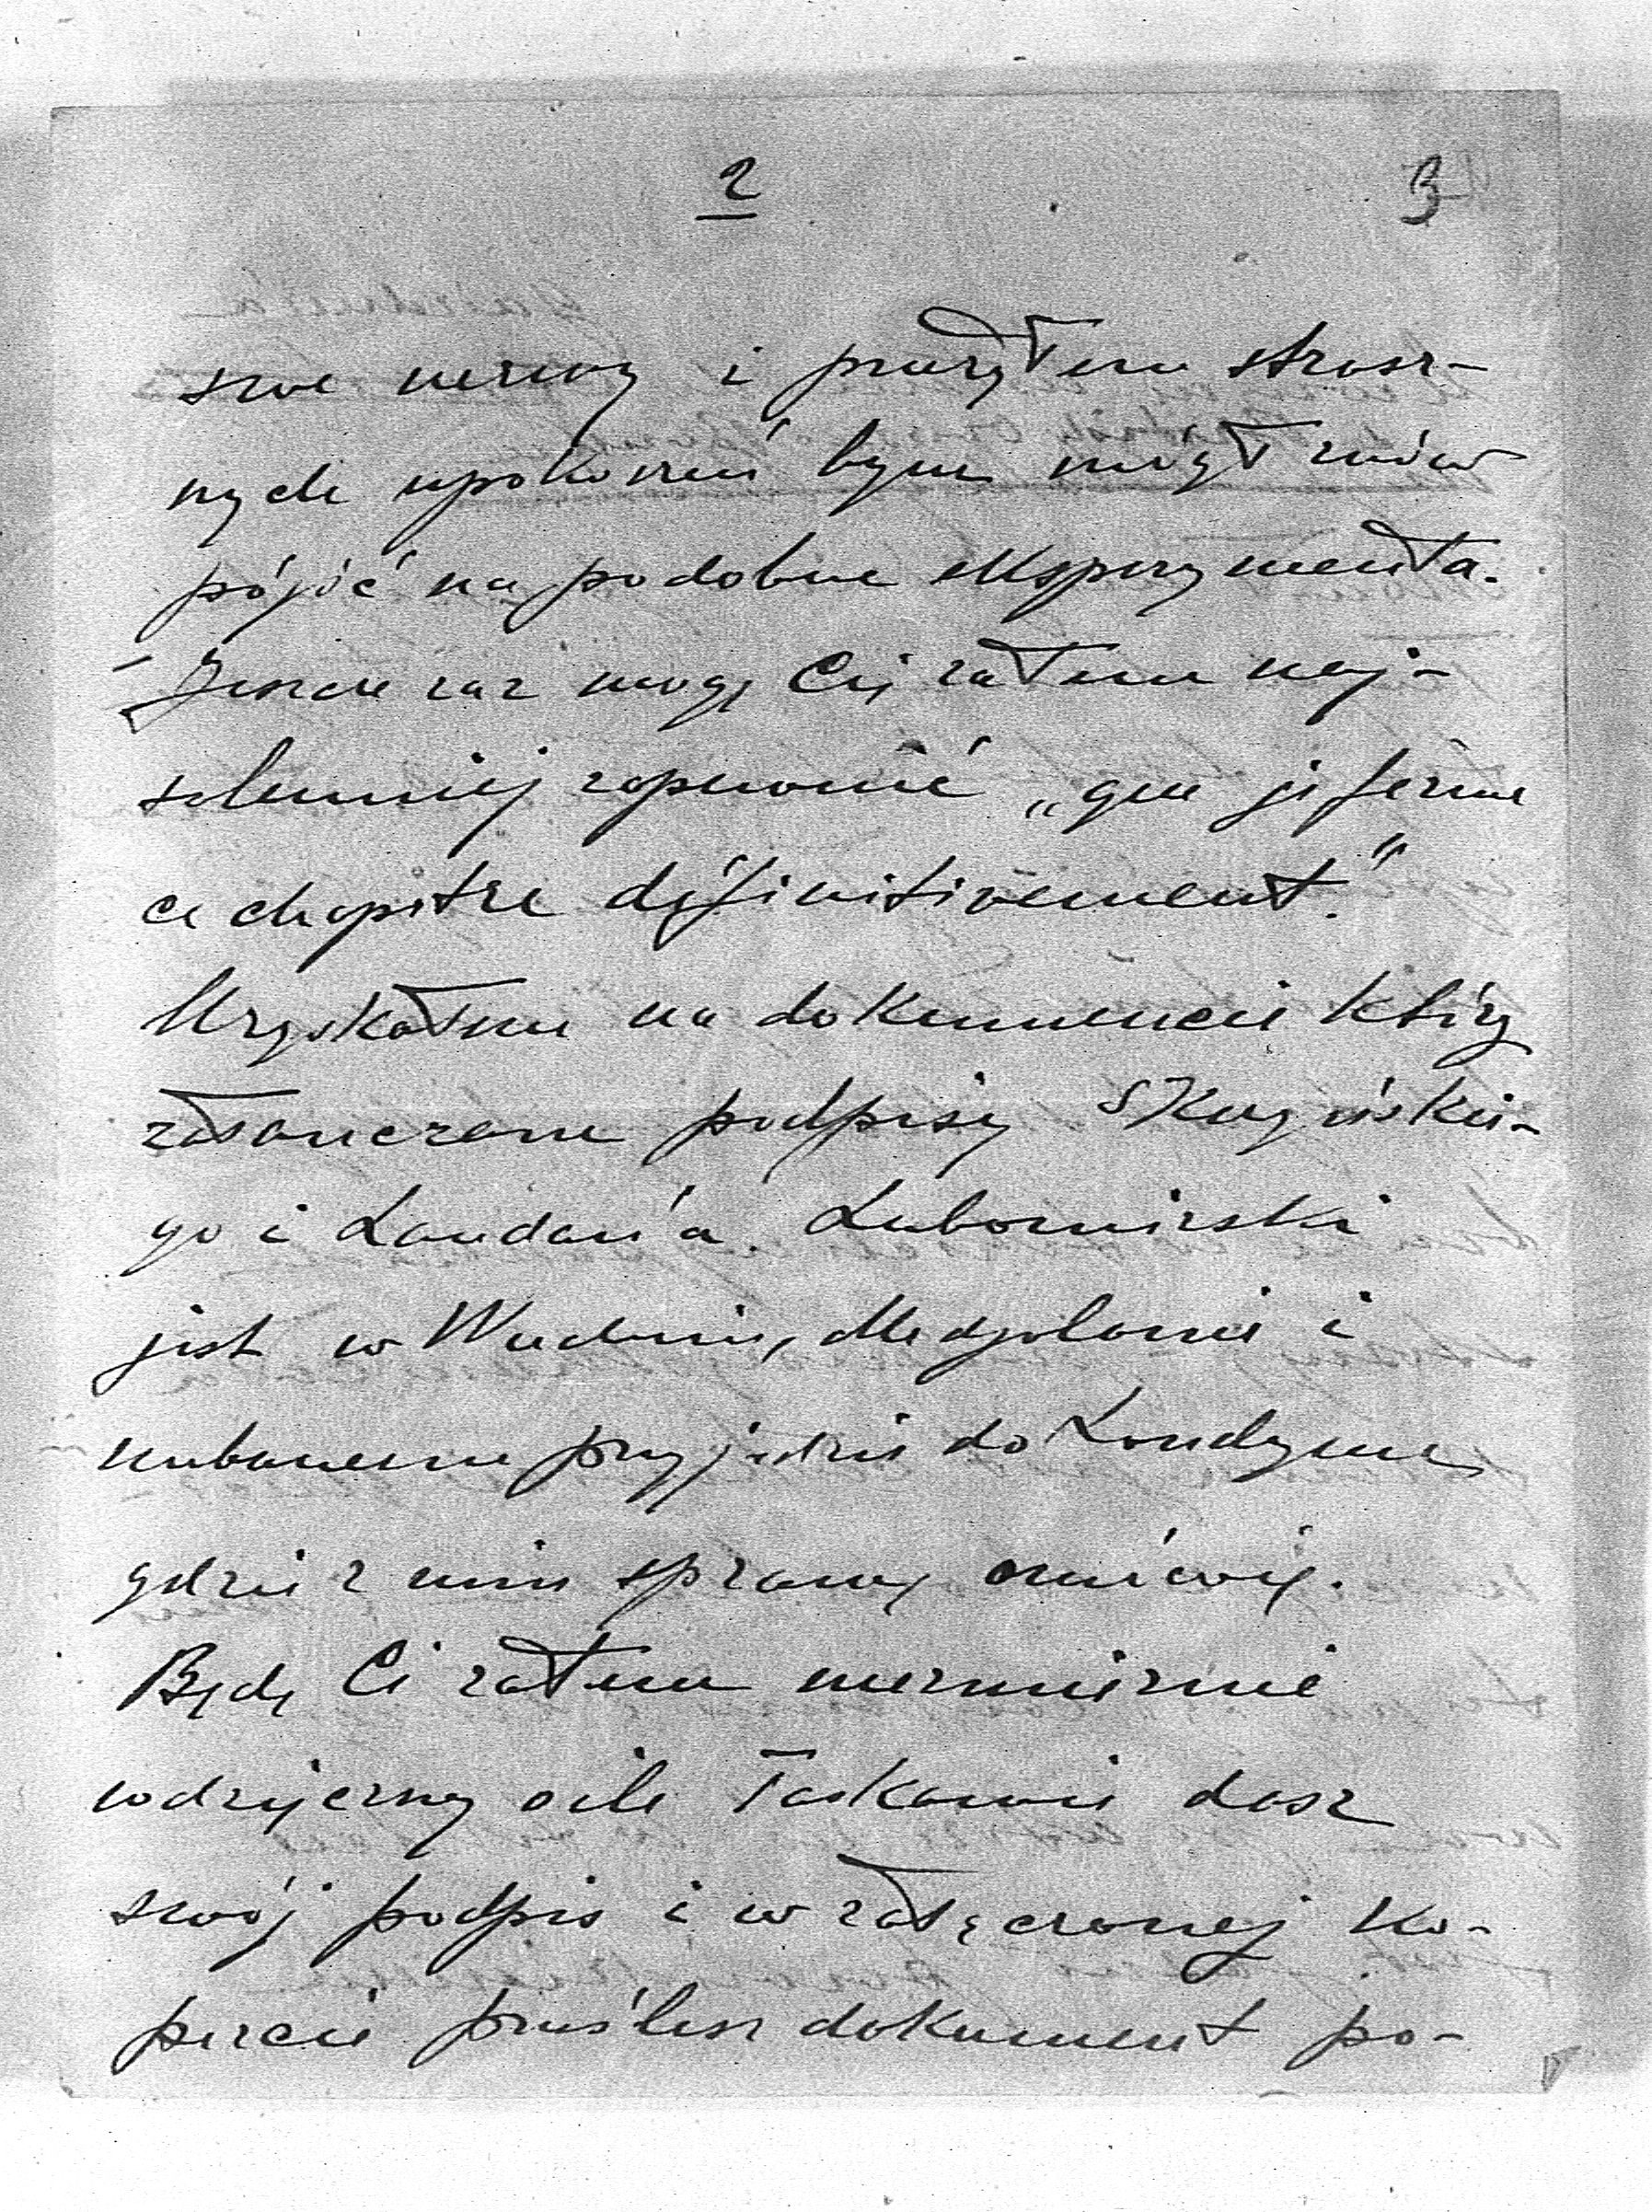 2
3
swe nerwy i przeżyłem strasz-
nych upokorzeń bym mógł znów
pójść na podobne eksperymenta.
Jeszcze raz mogę Cię zatem naj-
solenniej zapewnić „que je ferme
ce chapitre définitivement.”
Uzyskałem na dokumencie który
załączam podpisy Skrzyńskie-
go i Landau'a. Lubomirski
jest w Wiedniu, Medjolanie i
niebawem przyjedzie do Londynu,
gdzie z nim sprawę omówię.
Będę Ci zatem niezmiernie
wdzięczny o ile łaskawie dasz
swój podpis i w załączonej ko-
percie prześlesz dokument po-